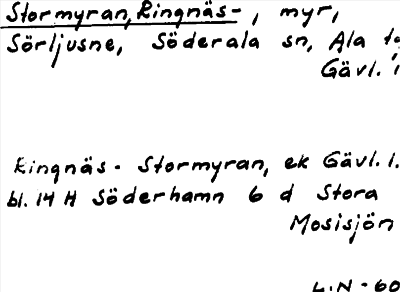 Stormyran, Ringnäs-, myr,
Sörljusne, Söderala sn, Ala
Gävl.
Ringnäs- Stormyran, ek Gävl. l.
bl. 14 H Söderhamn 6 d Stora
Mosisjön
L.N-60